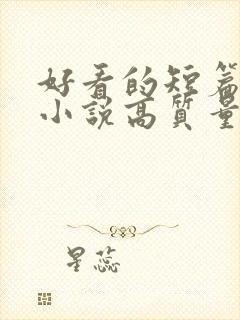 好看的短篇
小说高质量
星蕊